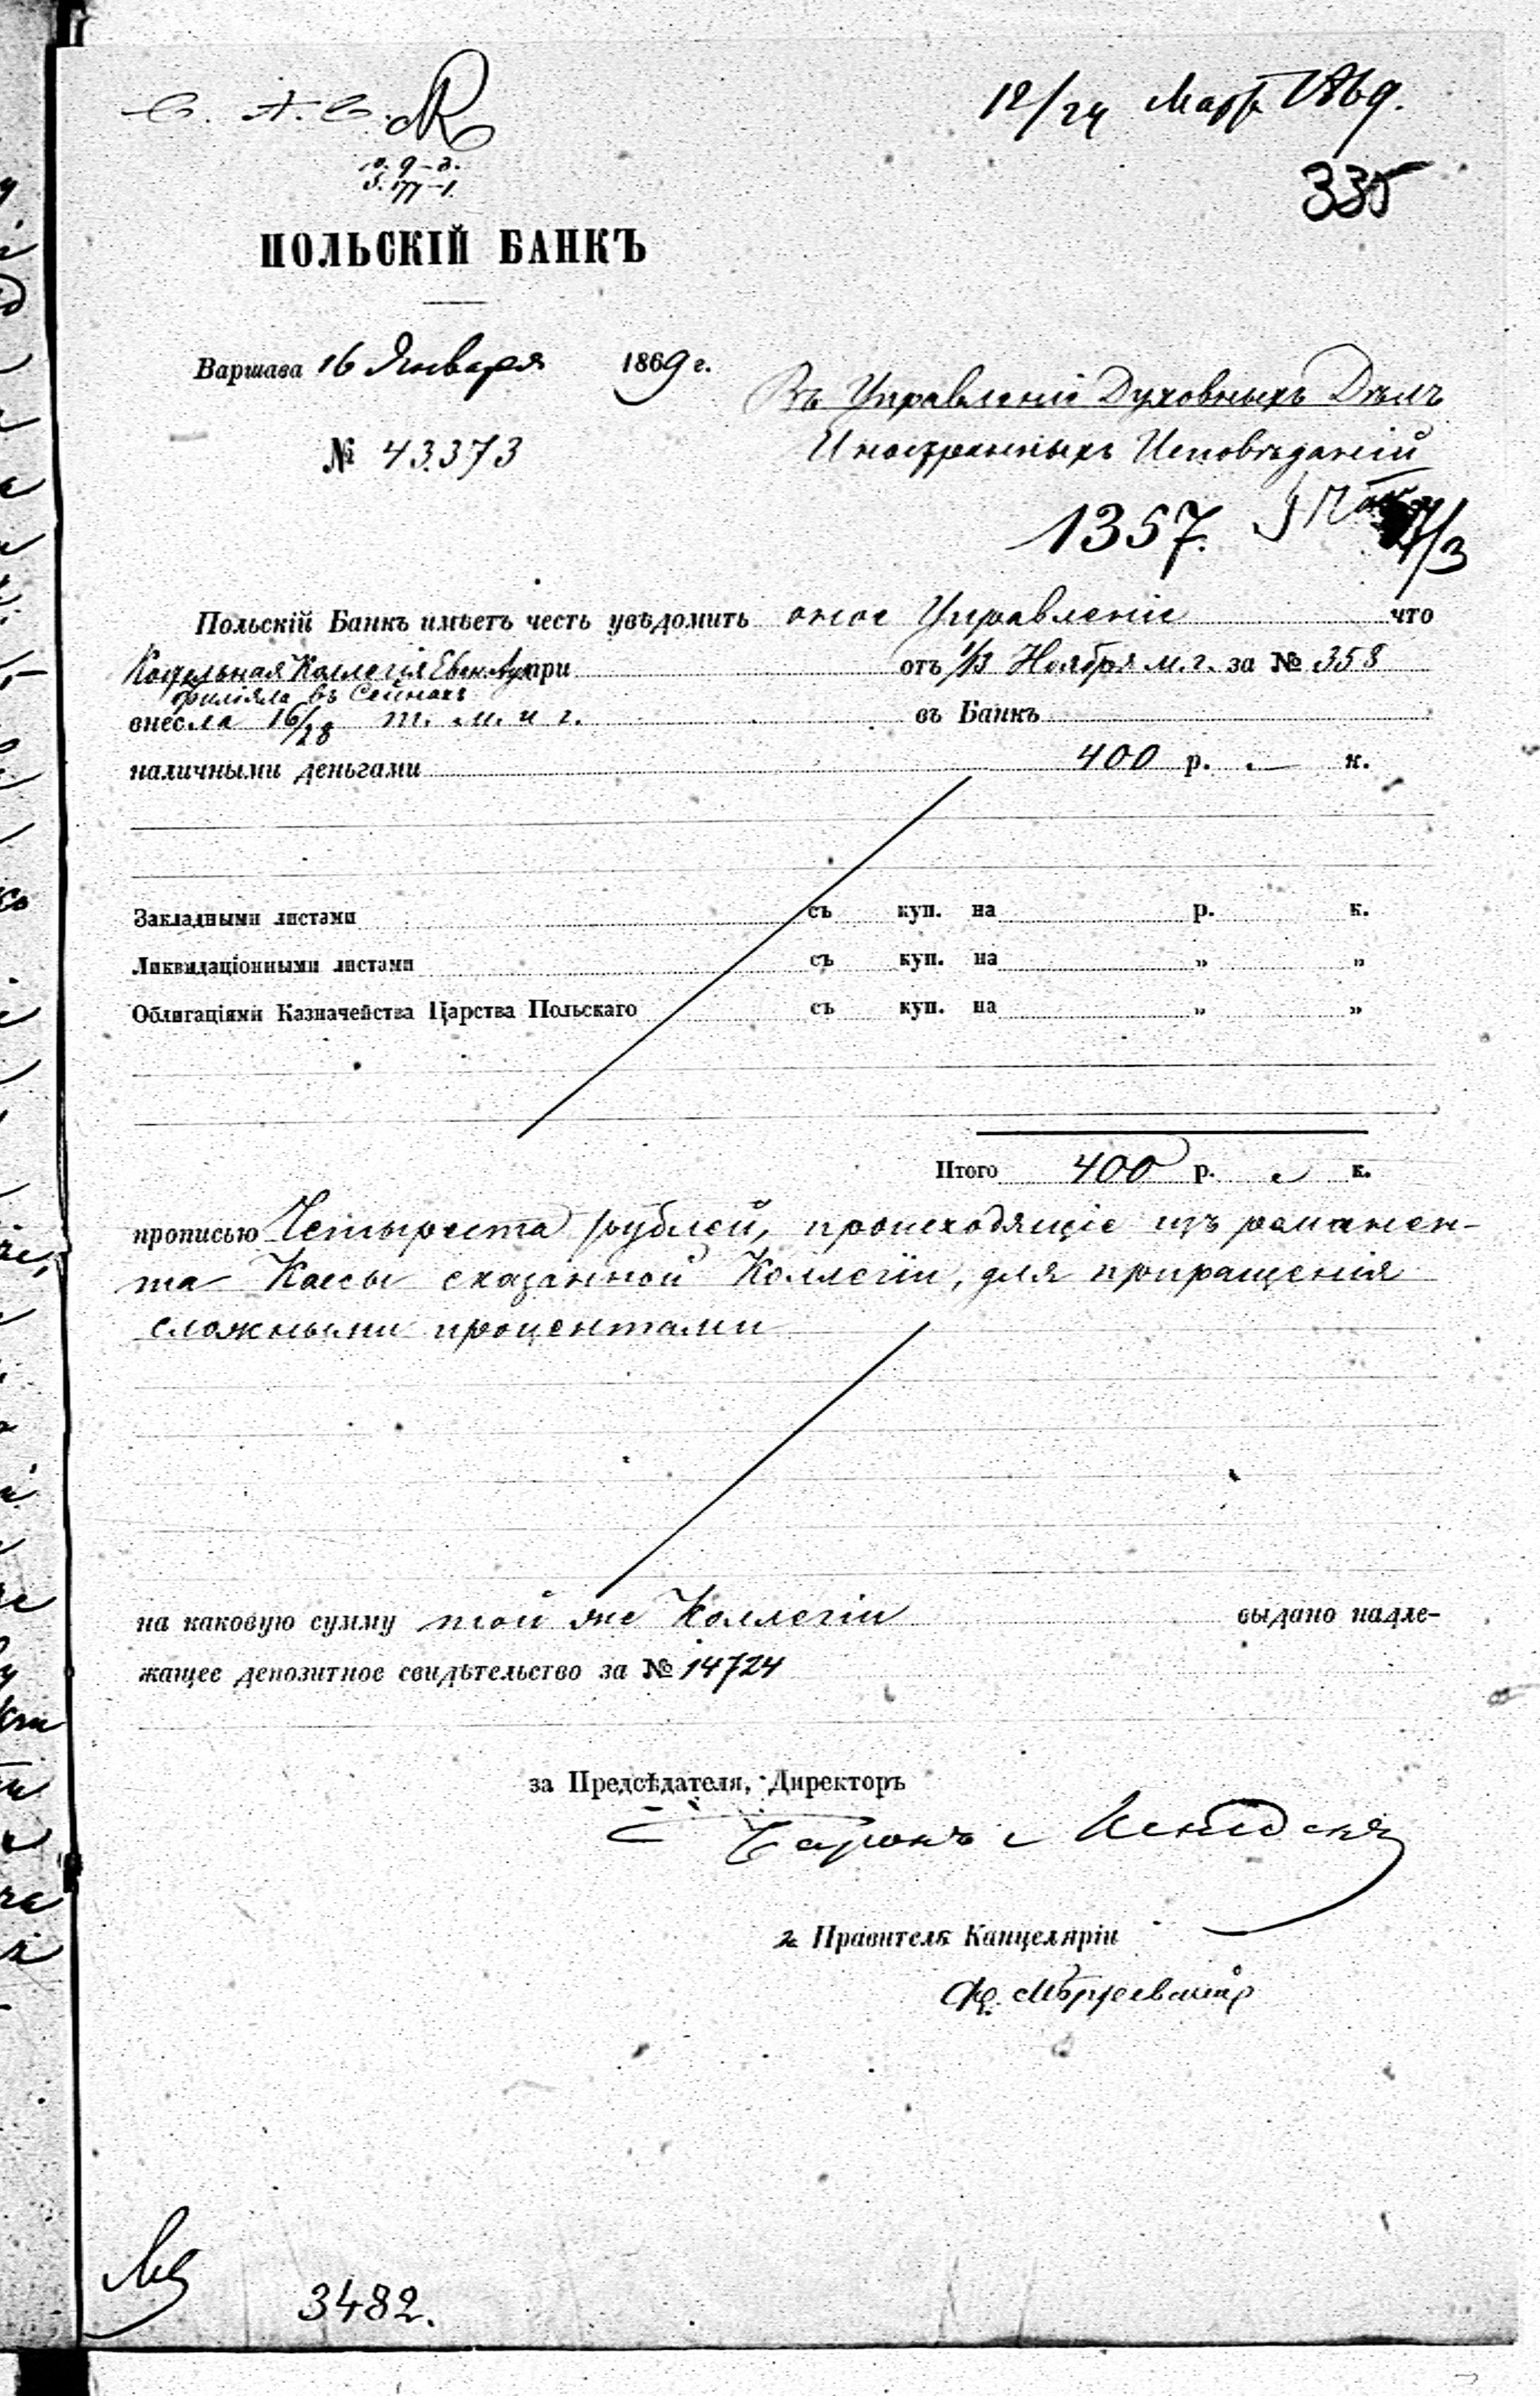 12/24 Март. 1869.
335
ПОЛЬСКІЙ БАНКЪ
Варшава 16 Января 1869 г.
Въ Управленіе Духовныхъ Дѣлъ
№ 43373
Иностранныхъ Исповѣданій
1357.
Польскій Банкъ имѣетъ честь увѣдомить оное Управленіе что
Коллегія при отъ 1/13 Ноября м. г. за № 358
филіяла въ Сейнахъ
внесла 16/28 т. м. и г. въ Банкъ
наличными деньгами 400 р. — к.
Закладными листами съ куп. на р. к.
Ликвидаціонными листами съ куп. на „ „
Облигаціями Казначейства Царства Польскаго съ куп. на „ „
Итого 400 р. к.
прописью Четыреста рублей, происходящіе изъ реманен-
та Кассы сказанной Коллегіи, для приращенія
сложными процентами
на каковую сумму той же Коллегіи выдано надле-
жащее депозитное свидѣтельство за № 14724
за Предсѣдателя, Директоръ
Баронъ
Правителя Канцеляріи
3482.